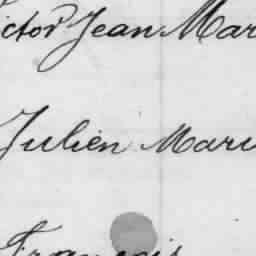 ictor Jean Mar
Julien Marie
François